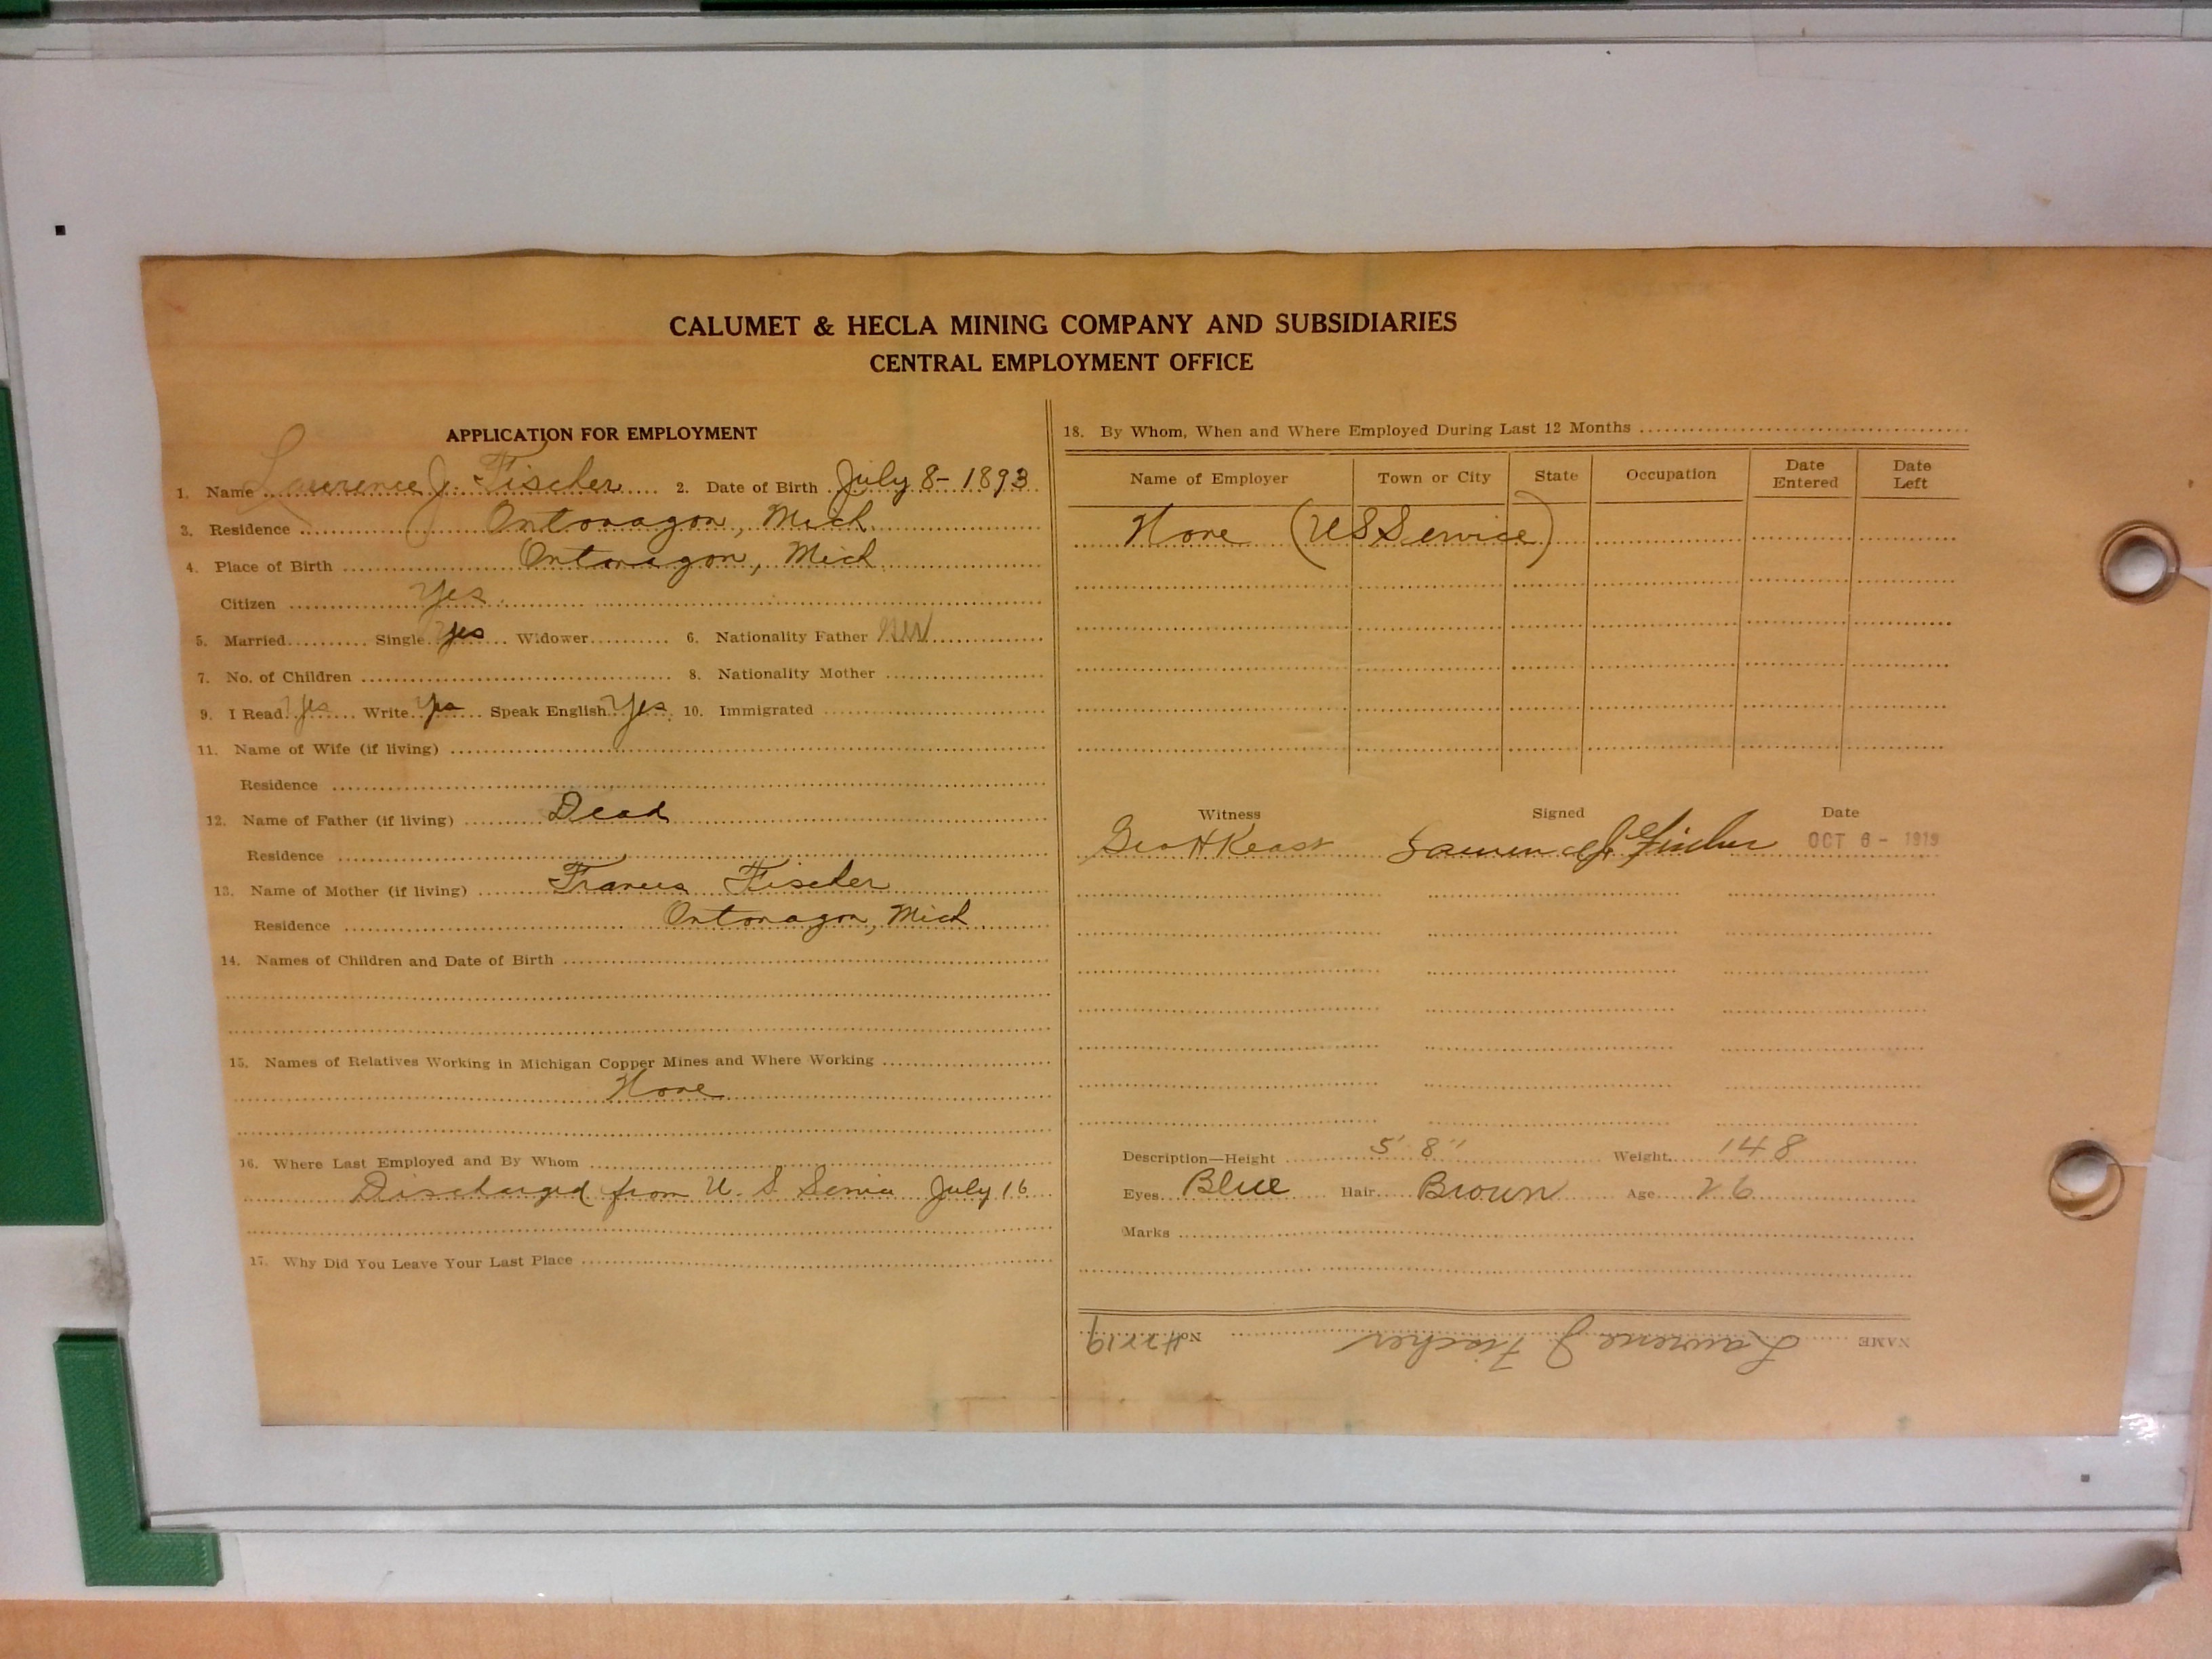 CALUMET & HECLA MINING COMPANY AND SUBSIDIARIES
CENTRAL EMPLOYMENT OFFICE
APPLICATION FOR EMPLOYMENT
1. Name Lawrence J. Fischer 2. Date of Birth July 8-1893
3. Residence Ontonagon, Mich
4. Place of Birth Ontonagon, Mich
Citizen Yes
5. Married Single Yes Widower 6. Nationality Father
7. No. of Children 8. Nationality Mother
9. I Read Yes Write Yes Speak English Yes 10. Immigrated
11. Name of Wife (if living)
Residence
12. Name of Father (if living) Dead
Residence
13. Name of Mother (if living) Frances Fischer
Residence Ontonagon, Mich
14. Names of Children and Date of Birth
15. Names of Relatives Working in Michigan Copper Mines and Where Working
None
16. Where Last Employed and By Whom
Discharged from U. S. Service July 16
17. Why Did You Leave Your Last Place
18. By Whom, When and Where Employed During Last 12 Months
Name of Employer Town or City State Occupation Date Entered Date Left
None (US Service)
Witness Signed Date
Geo H Keast Lawrence J. Fischer OCT 6 - 1919
Description—Height 5' 8" Weight 148
Eyes Blue Hair Brown Age 26
Marks
NAME Lawrence J Fischer No.